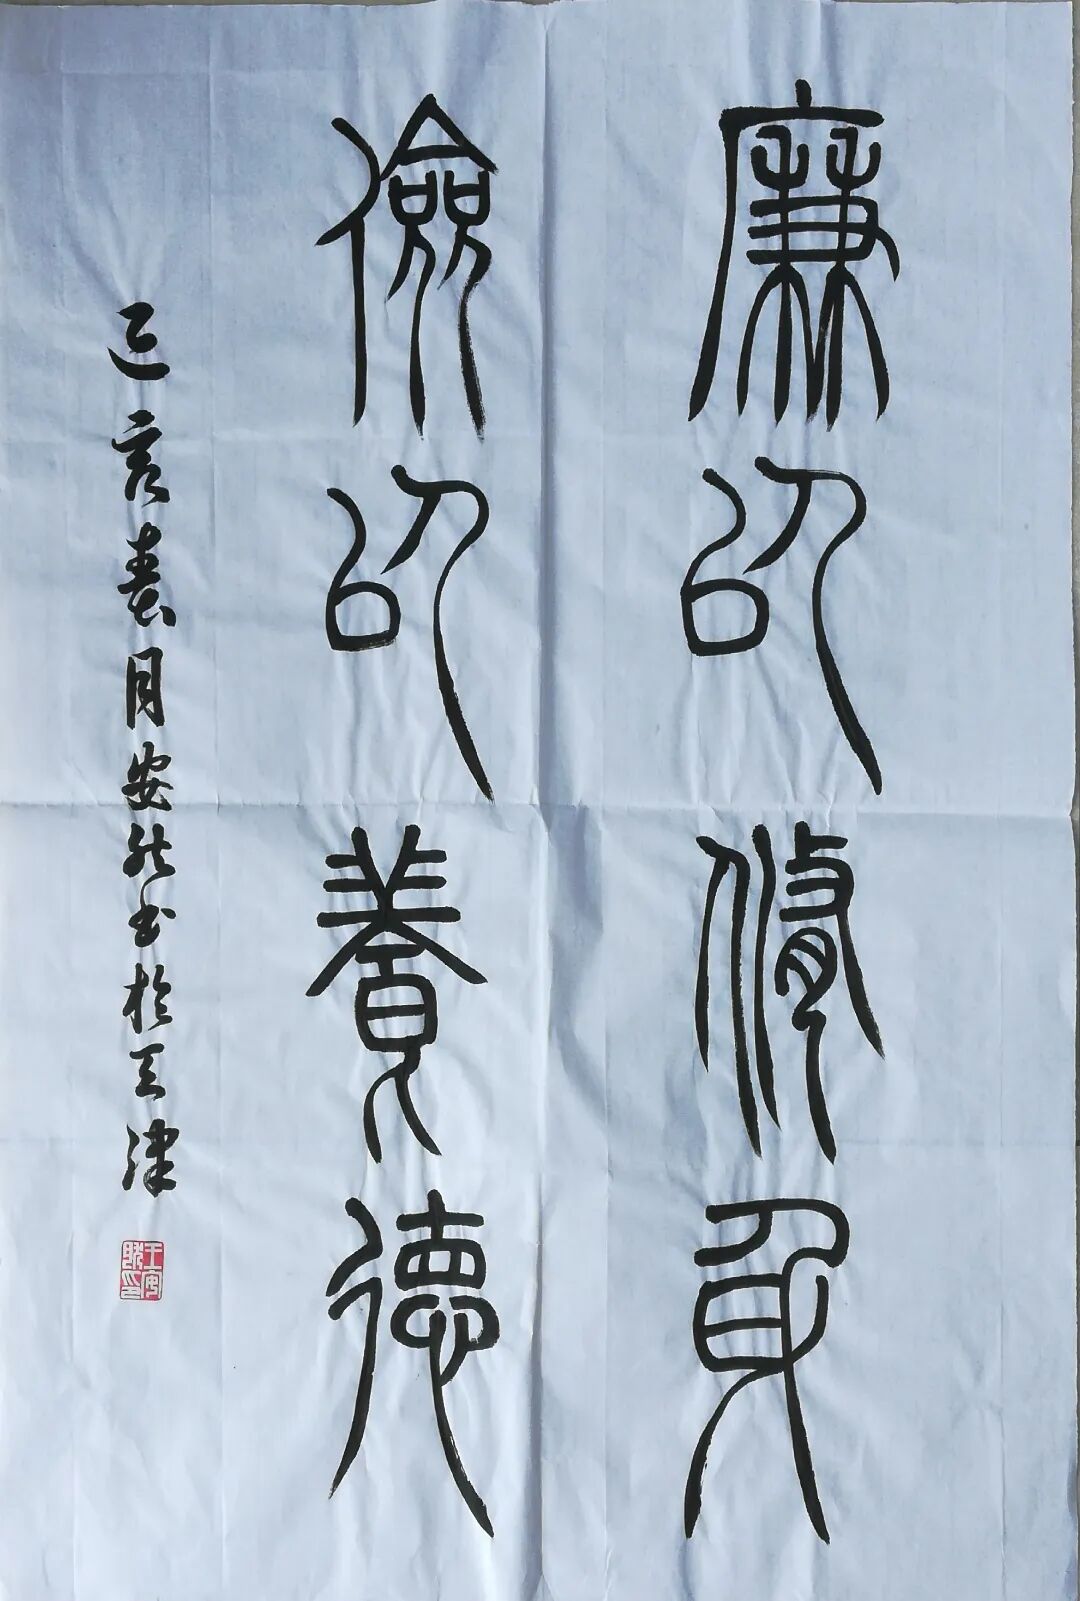 廉以修身
儉以養德
己亥春月安然书於天津
王安然印